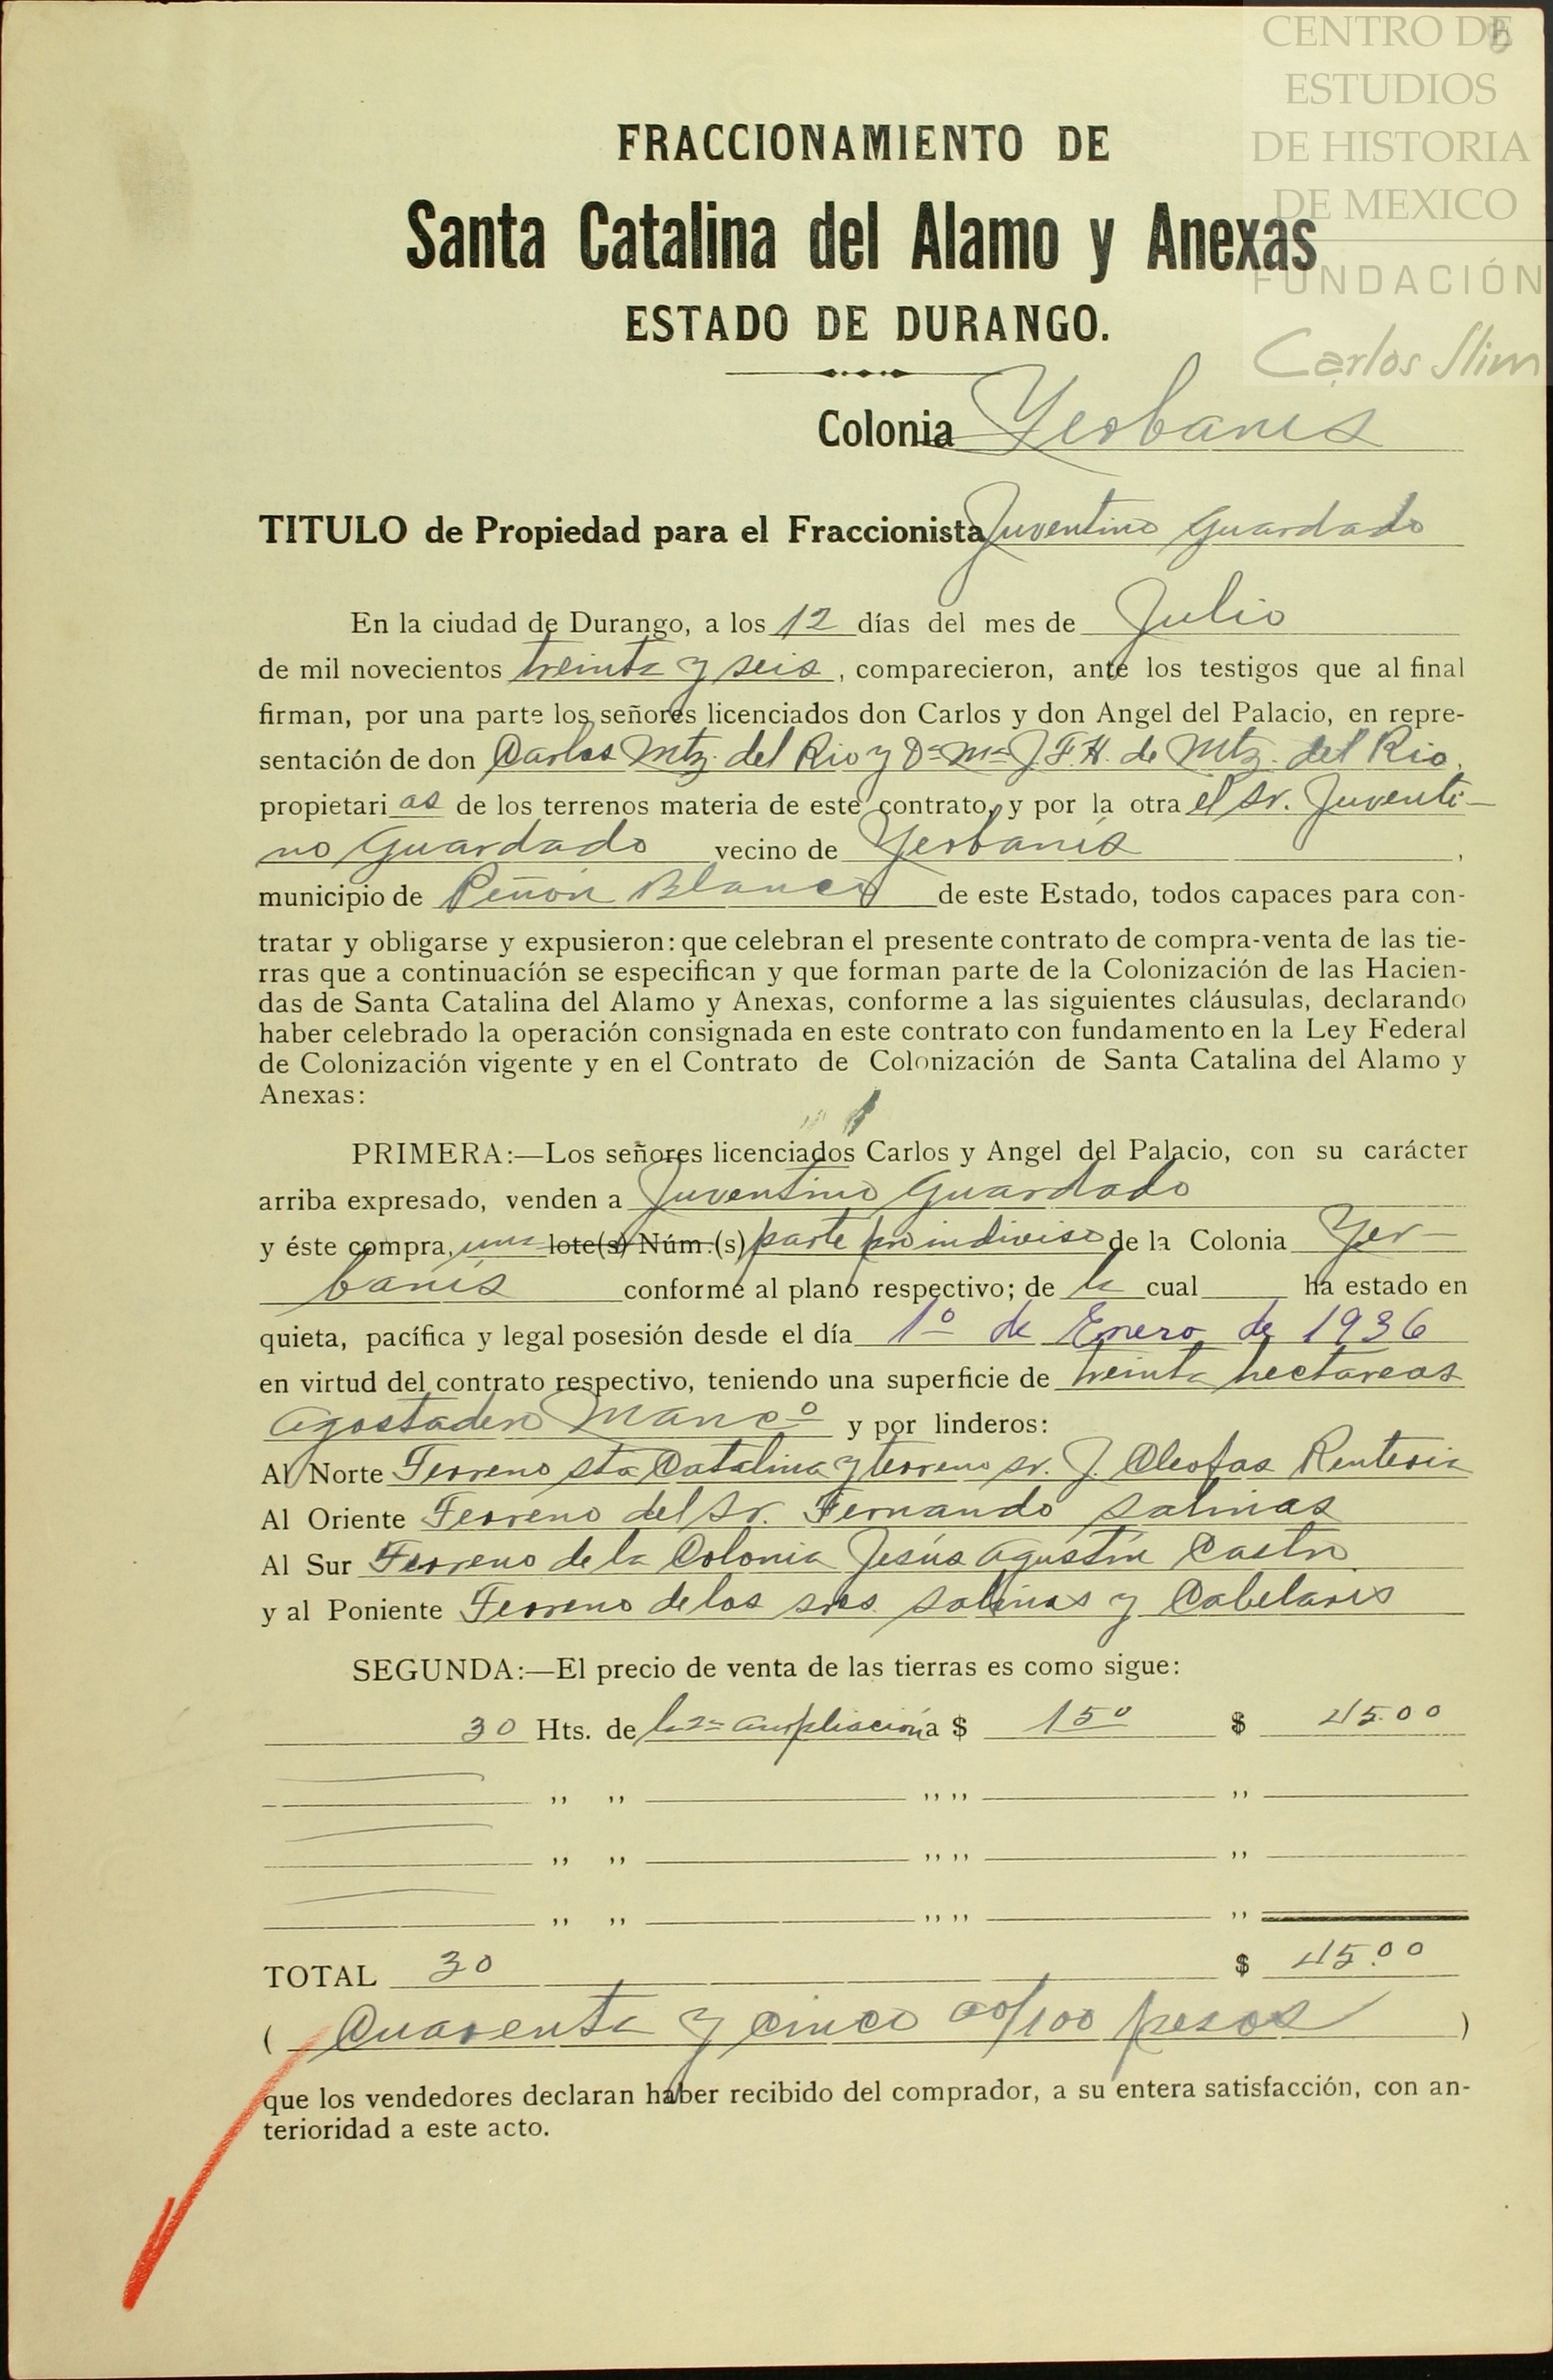 CENTRO DE
ESTUDIOS
DE HISTORIA
DE MEXICO
FUNDACIÓN
Carlos Slim
FRACCIONAMIENTO DE
Santa Catalina del Alamo y Anexas
ESTADO DE DURANGO.
Colonia Yerbanis
TITULO de Propiedad para el Fraccionista Juventino Guardado
En la ciudad de Durango, a los 12 días del mes de Julio
de mil novecientos treinta y seis, comparecieron, ante los testigos que al final
firman, por una parte los señores licenciados don Carlos y don Angel del Palacio, en repre-
sentación de don Carlos Mtz. del Rio y Dª Mª J. F. H. de Mtz. del Rio,
propietarias de los terrenos materia de este contrato, y por la otra el Sr. Juventi-
no Guardado vecino de Yerbanís,
municipio de Peñón Blanco de este Estado, todos capaces para con-
tratar y obligarse y expusieron: que celebran el presente contrato de compra-venta de las tie-
rras que a continuacíón se especifican y que forman parte de la Colonización de las Hacien-
das de Santa Catalina del Alamo y Anexas, conforme a las siguientes cláusulas, declarando
haber celebrado la operación consignada en este contrato con fundamento en la Ley Federal
de Colonización vigente y en el Contrato de Colonización de Santa Catalina del Alamo y
Anexas:
PRIMERA:—Los señores licenciados Carlos y Angel del Palacio, con su carácter
arriba expresado, venden a Juventino Guardado
y éste compra, una lote(s) Núm.(s) parte proindiviso de la Colonia Yer-
banís conforme al plano respectivo; de la cual ha estado en
quieta, pacífica y legal posesión desde el día 1º de Enero de 1936
en virtud del contrato respectivo, teniendo una superficie de treinta hectareas
agostadero Mancº y por linderos:
Al Norte Terreno Sta Catalina y terreno sr. J. Cleofas Renteria
Al Oriente Terreno del Sr. Fernando Salinas
Al Sur Terreno de la Colonia Jesús Agustín Castro
y al Poniente Terreno de los sres. Salinas y
SEGUNDA:—El precio de venta de las tierras es como sigue:
30 Hts. de la 2ª ampliación a $ 1.50 $ 45.00
,, ,, ,, ,, ,,
,, ,, ,, ,, ,,
,, ,, ,, ,, ,,
TOTAL 30 $ 45.00
( Cuarenta y cinco 00/100 pesos )
que los vendedores declaran haber recibido del comprador, a su entera satisfacción, con an-
terioridad a este acto.